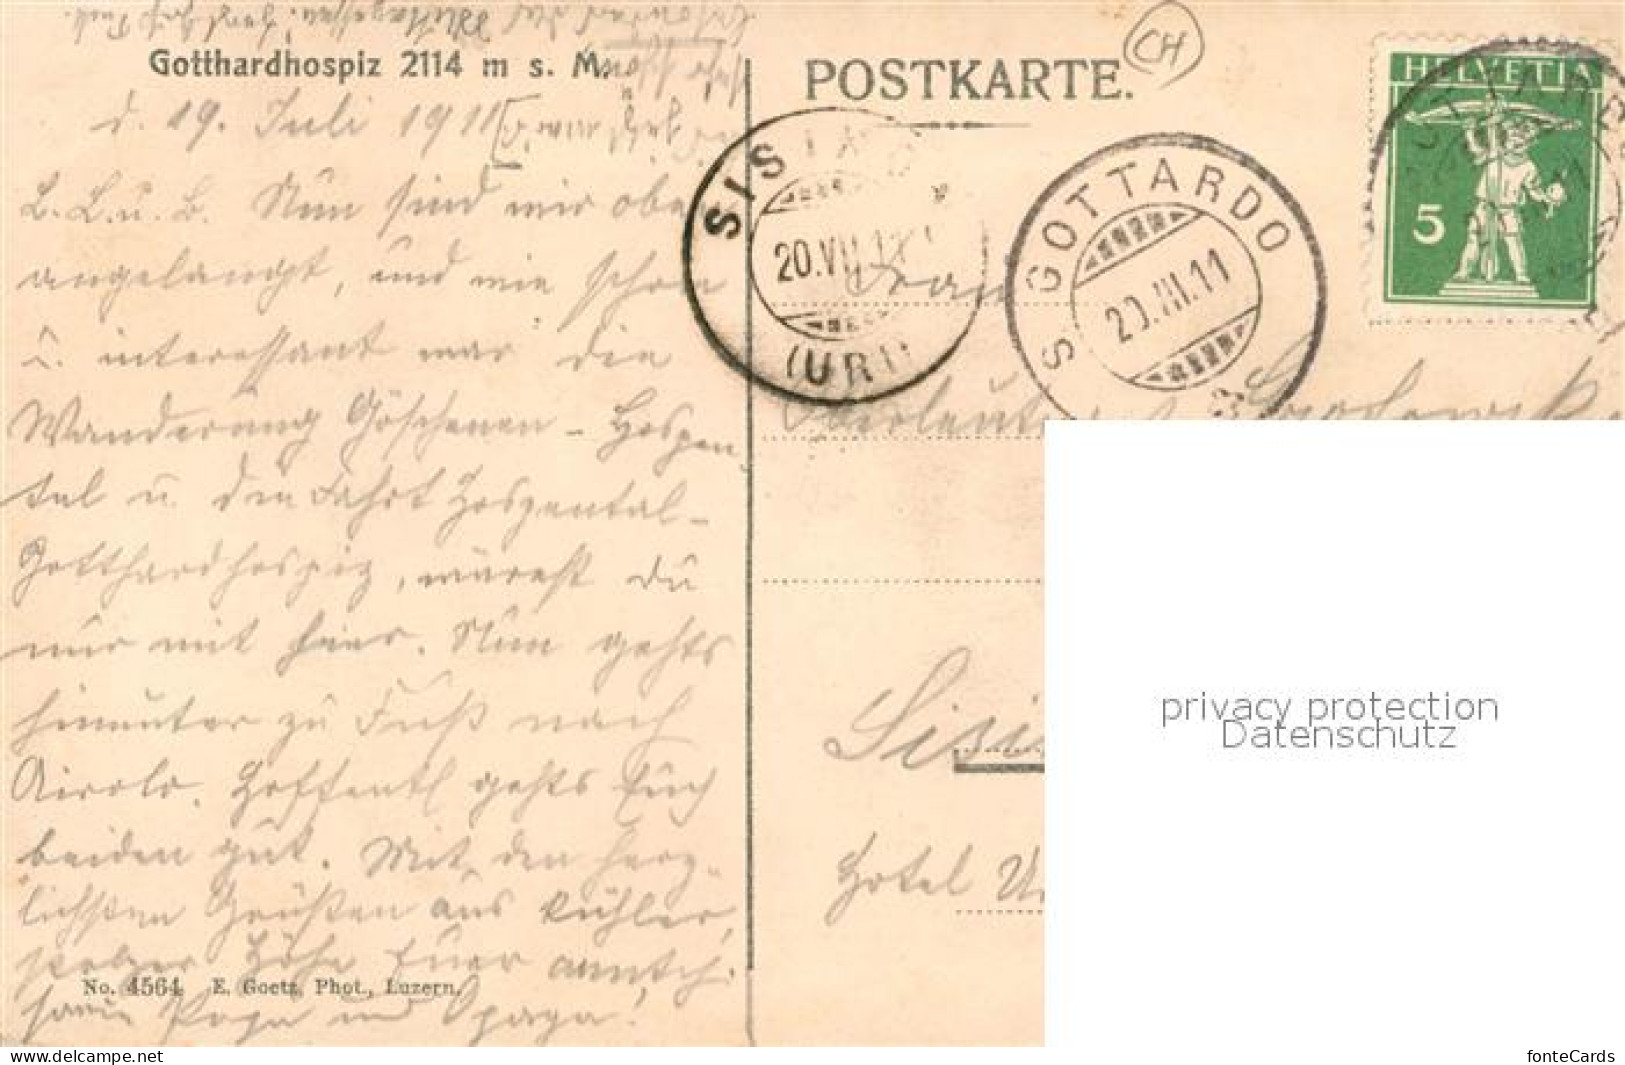 Gotthardhospiz 2114 m s. M.
d. 19. Juli 1911
L. L. u. B. Nun sind wir oben
angelangt, und wie schön
u. interessant war die
Wanderung Göschenen - Hospen-
tal u. die Fahrt Hospental-
Gotthardhospiz, wärest du
nur mit hier. Nun gehts
hinunter zu Fuß nach
Airolo. Hoffentl gehts Euch
beiden gut. Mit den herz-
lichsten Grüßen aus kühler,
stolzer Höhe Euer
Papa und Opapa!
No. 4564 E. Goetz, Phot., Luzern.
POSTKARTE.
CH
HELVETIA
5
SISIKON
20.VII.11
(URI)
S. GOTTARDO
20.VII.11
Frau
Oberleutn
Sisi
Hotel U
privacy protection
Datenschutz
www.ansichtskarten-center.de
fonteCards